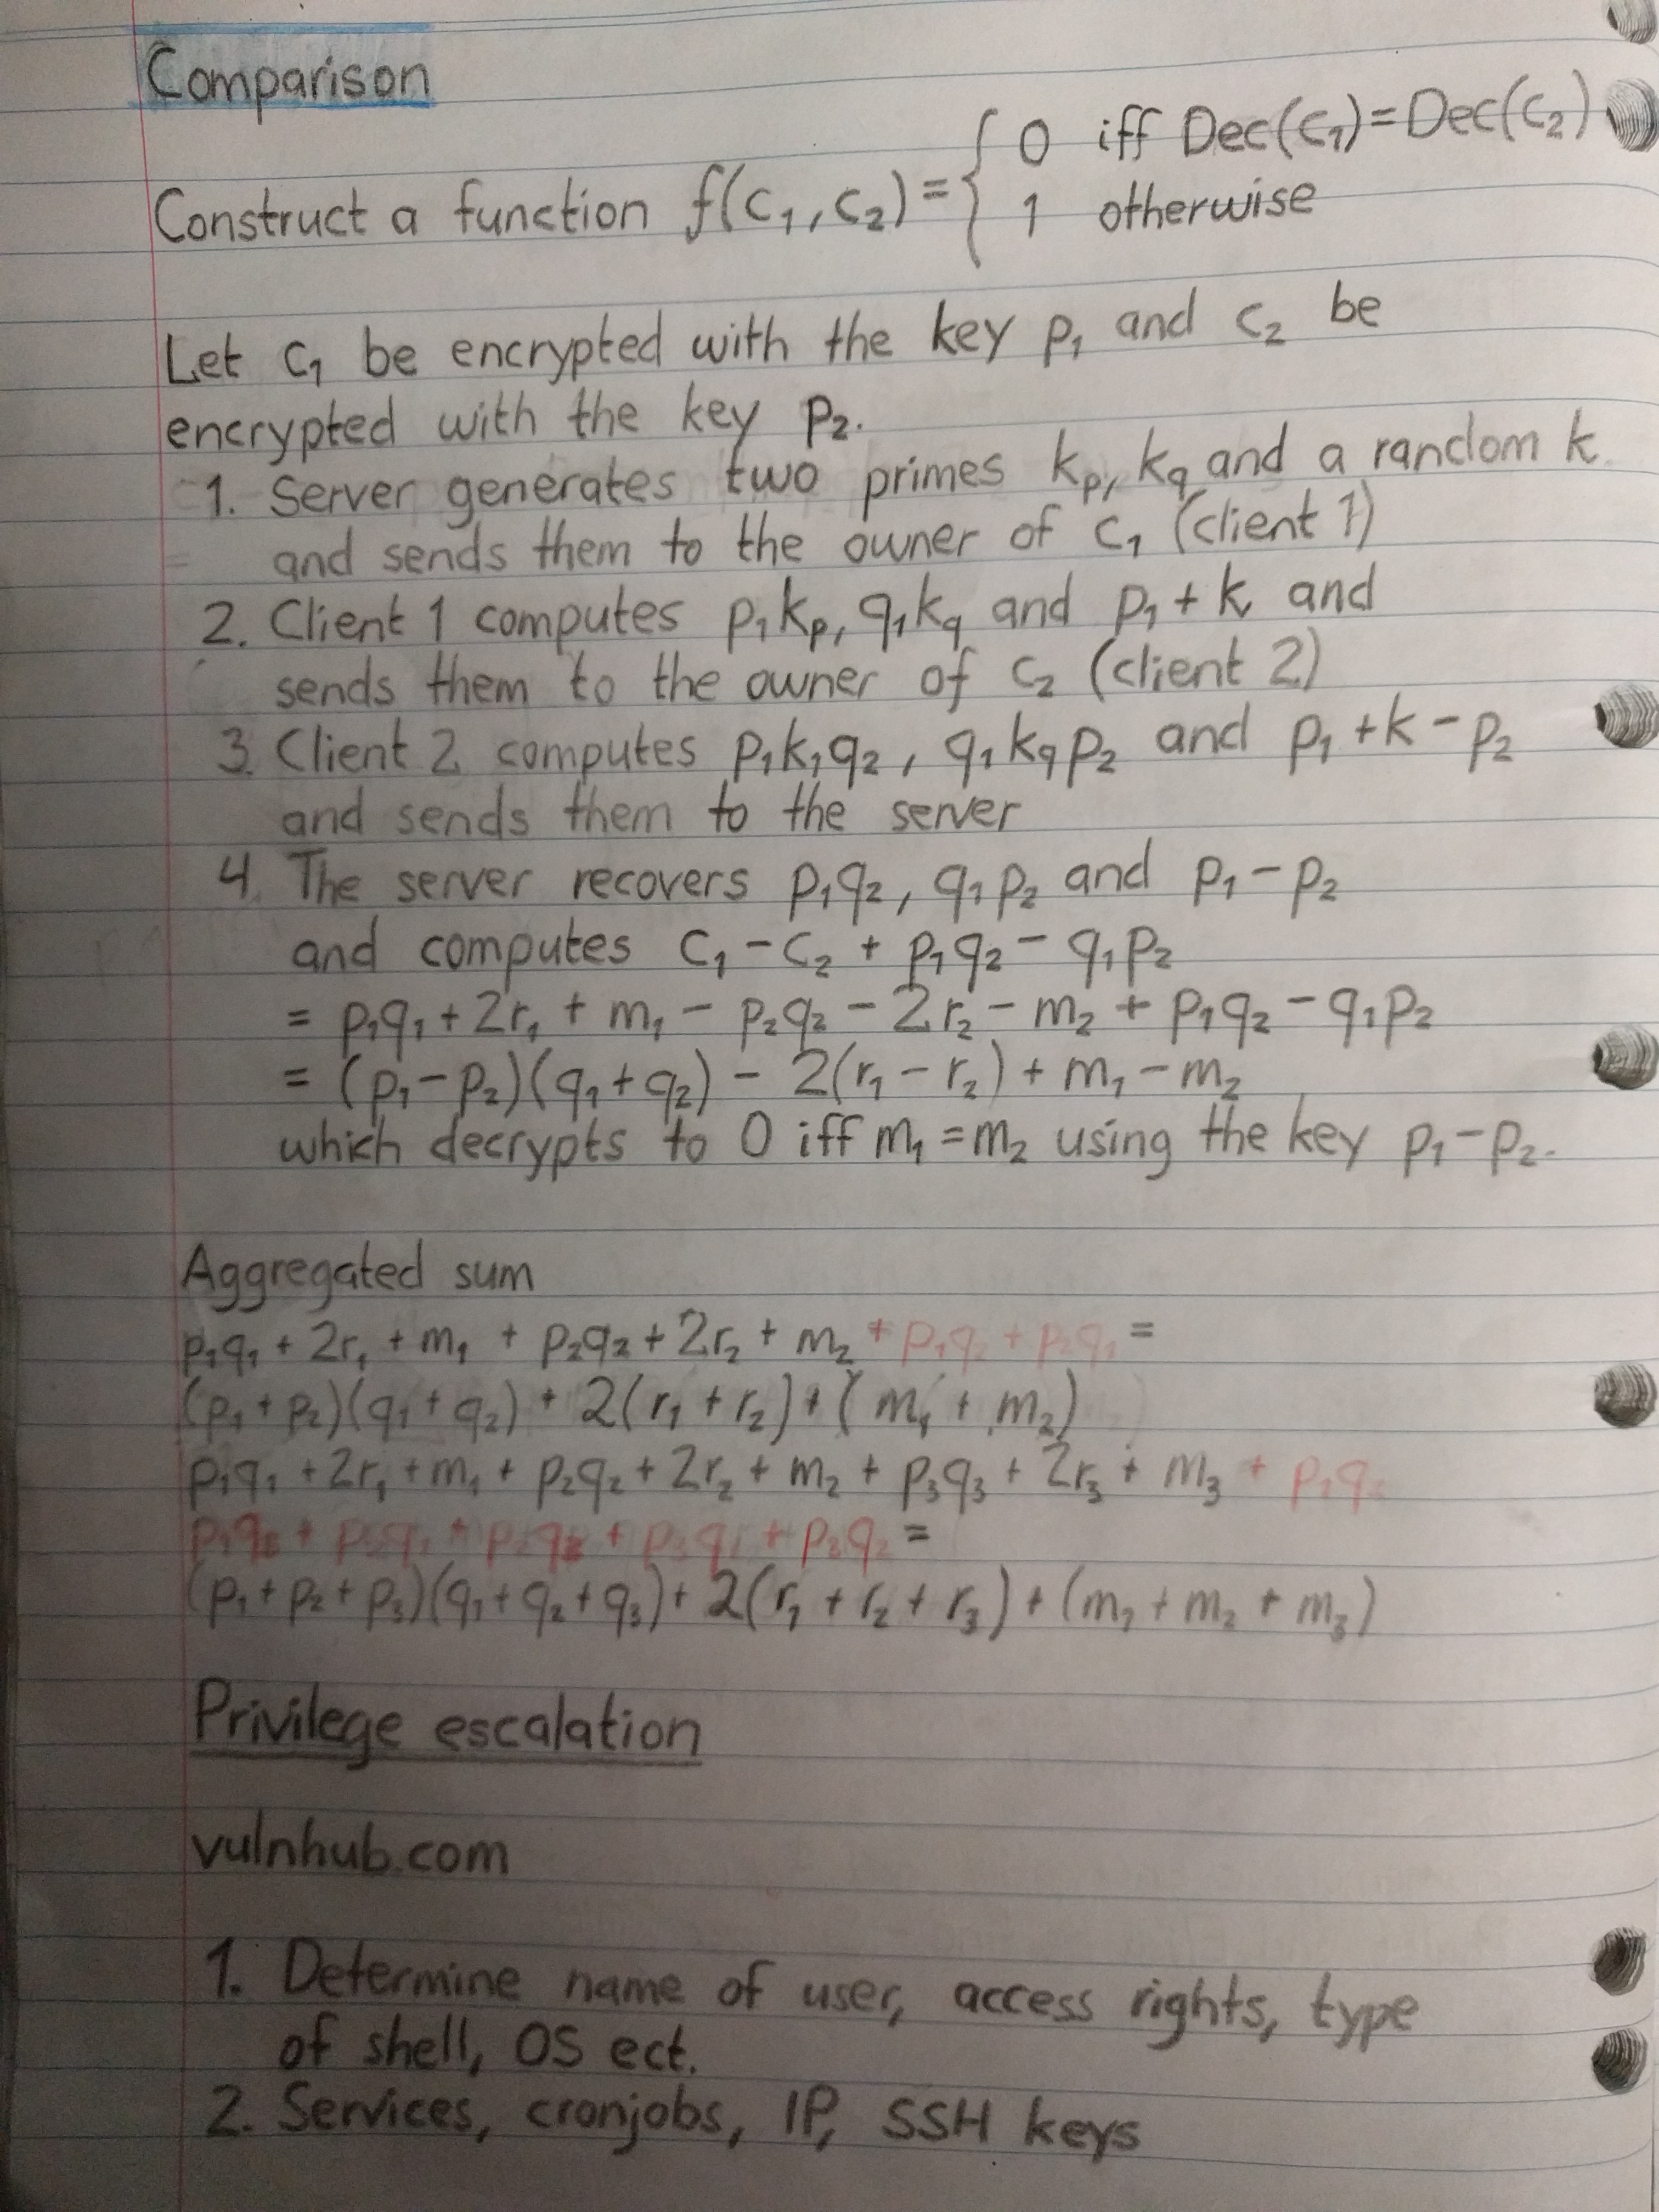 Comparison
Construct a function f(c₁, c₂) = { 0 iff Dec(c₁) = Dec(c₂)
1 otherwise
Let c₁ be encrypted with the key p₁ and c₂ be
encrypted with the key p₂.
1. Server generates two primes kₚ, k_q and a random k
and sends them to the owner of c₁ (client 1)
2. Client 1 computes p₁kₚ, q₁k_q and p₁ + k and
sends them to the owner of c₂ (client 2)
3. Client 2 computes p₁k₁q₂, q₁k_qp₂ and p₁ + k - p₂
and sends them to the server
4. The server recovers p₁q₂, q₁p₂ and p₁ - p₂
and computes c₁ - c₂ + p₁q₂ - q₁p₂
= p₁q₁ + 2r₁ + m₁ - p₂q₂ - 2r₂ - m₂ + p₁q₂ - q₁p₂
= (p₁ - p₂)(q₁ + q₂) - 2(r₁ - r₂) + m₁ - m₂
which decrypts to 0 iff m₁ = m₂ using the key p₁ - p₂.
Aggregated sum
p₁q₁ + 2r₁ + m₁ + p₂q₂ + 2r₂ + m₂ + p₁q₂ + p₂q₁ =
(p₁ + p₂)(q₁ + q₂) + 2(r₁ + r₂) + (m₁ + m₂)
p₁q₁ + 2r₁ + m₁ + p₂q₂ + 2r₂ + m₂ + p₃q₃ + 2r₃ + m₃ + p₁q₂
p₁q₃ + p₂q₁ + p₂q₃ + p₃q₁ + p₃q₂ =
(p₁ + p₂ + p₃)(q₁ + q₂ + q₃) + 2(r₁ + r₂ + r₃) + (m₁ + m₂ + m₃)
Privilege escalation
vulnhub.com
1. Determine name of user, access rights, type
of shell, OS ect.
2. Services, cronjobs, IP, SSH keys